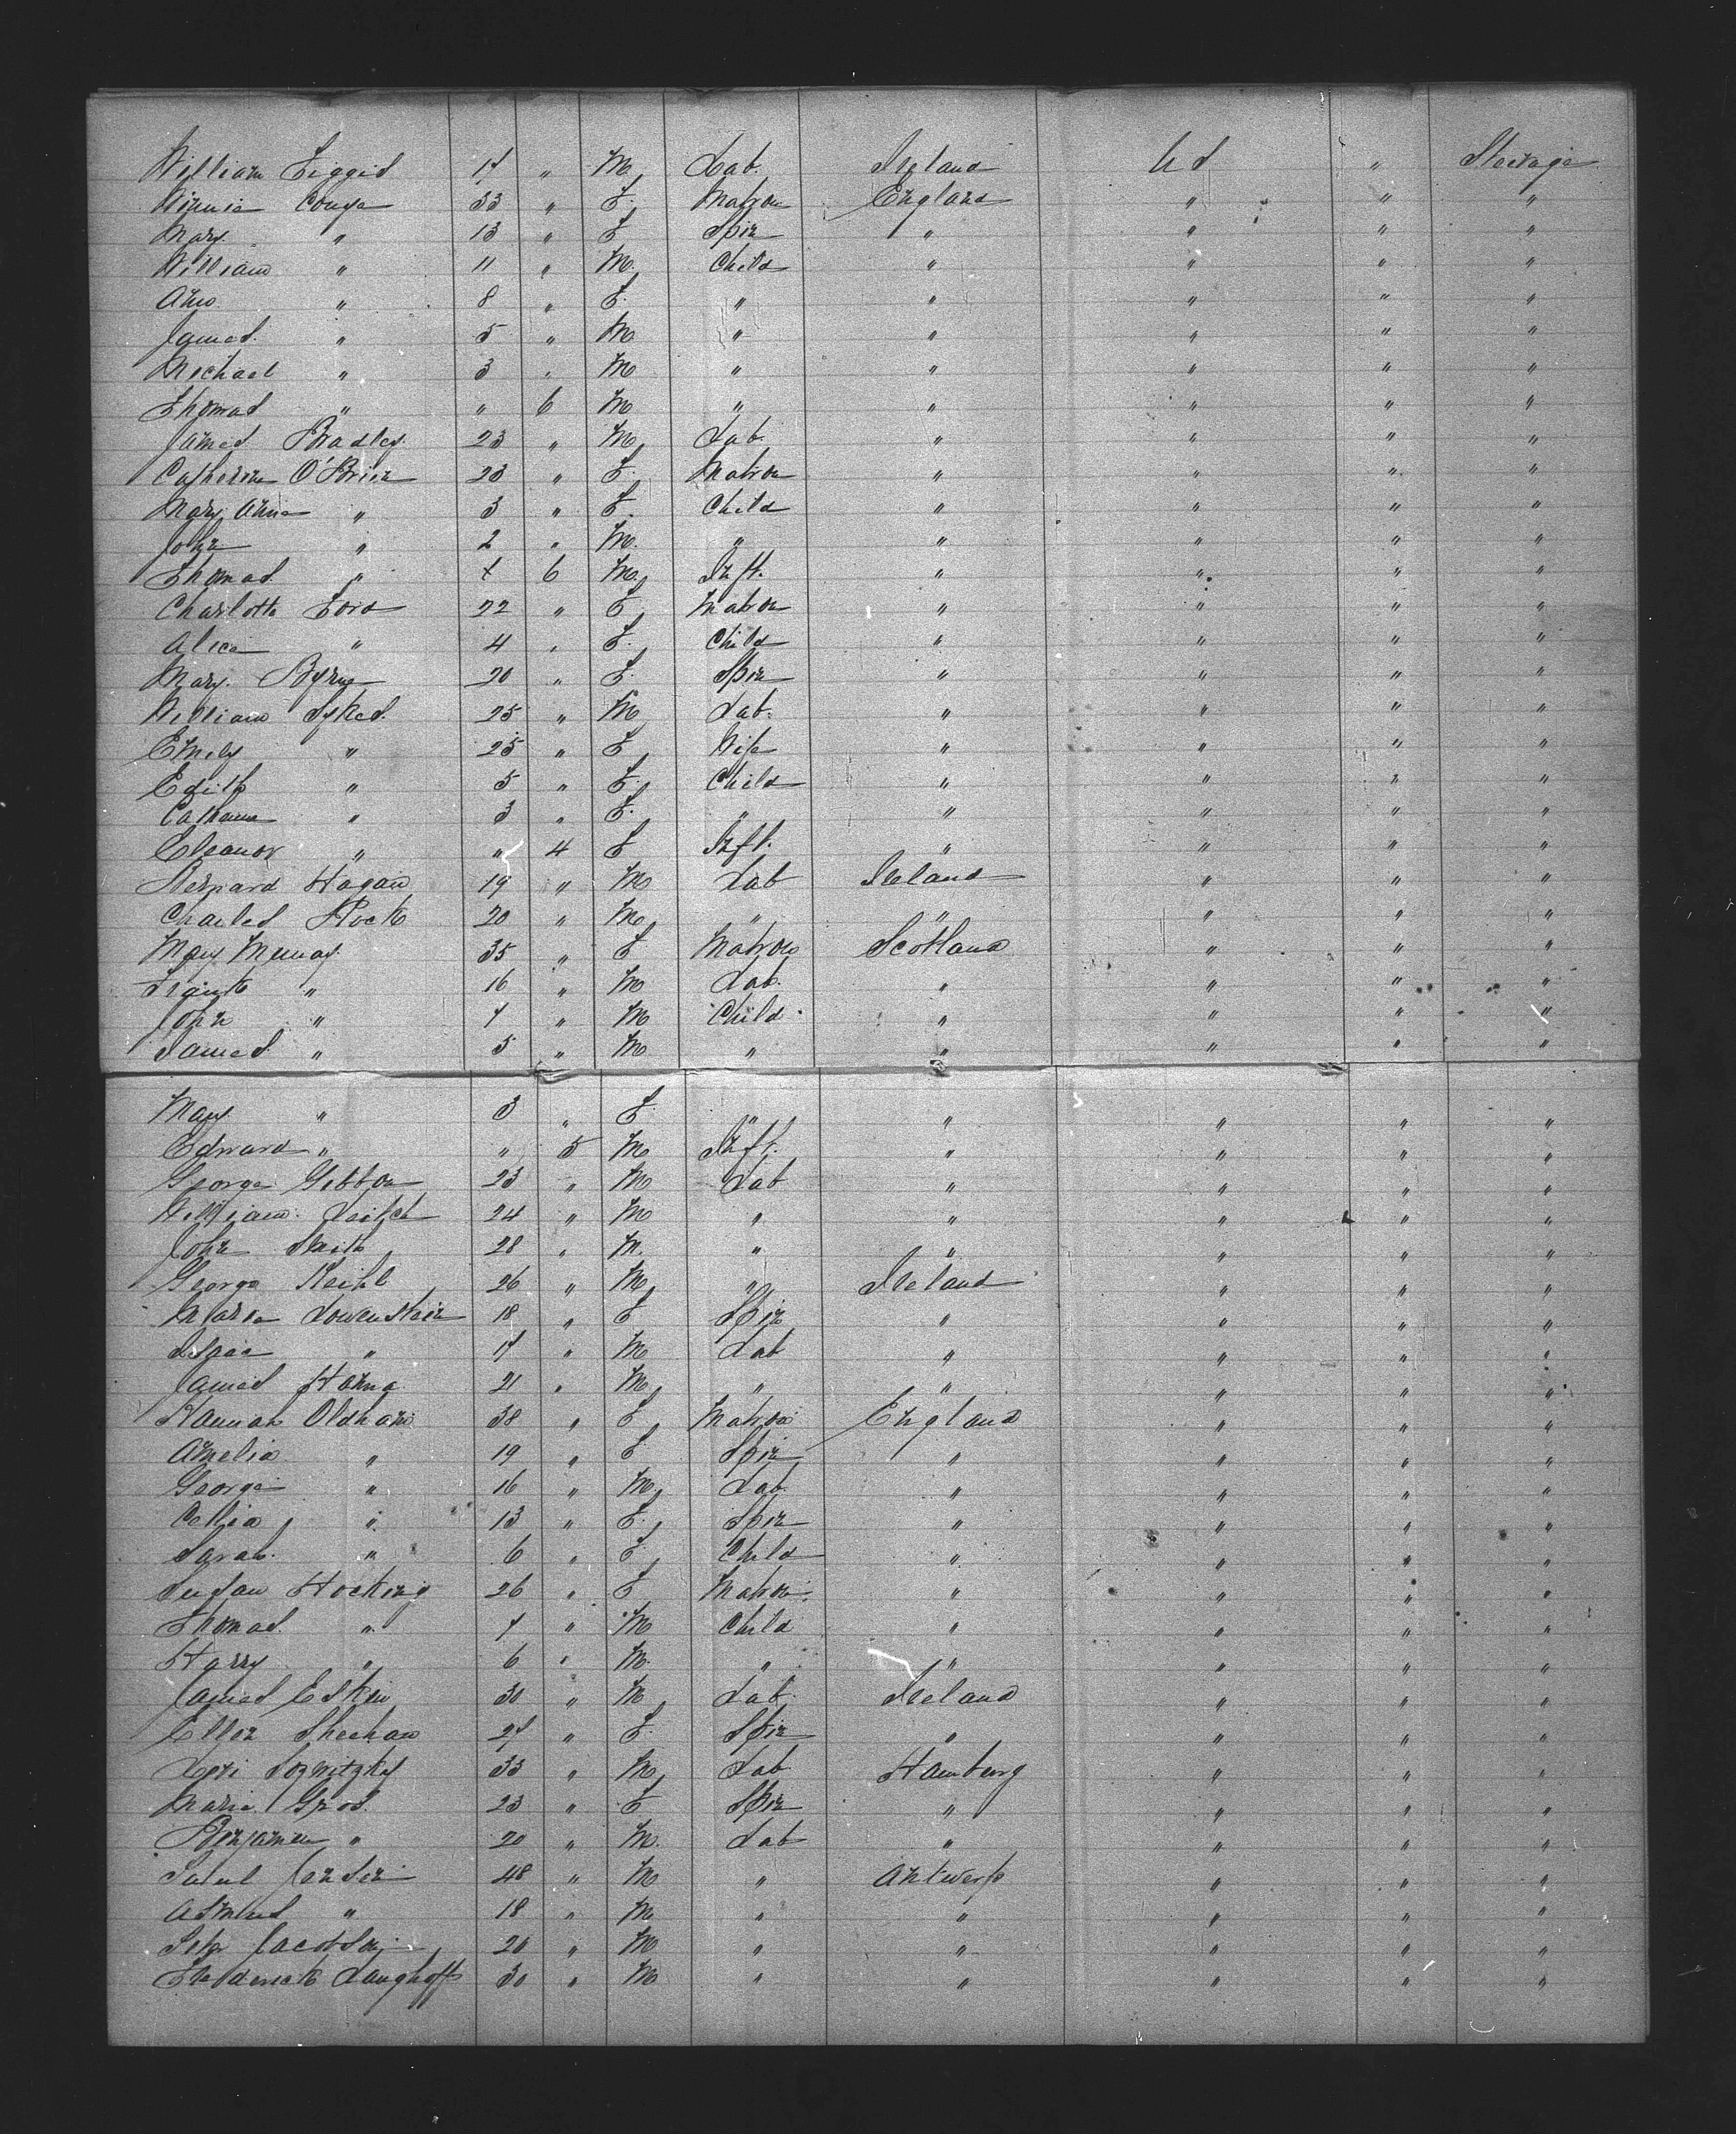 William Figgis 17 " M Lab. Ireland U S " Steerage
Winnie Couga 33 " F. Matron England " " "
Mary " 13 " F Spin " " " "
William " 11 " M. Child " " " "
Ann " 8 " F. " " " " "
James. " 5 " M " " " " "
Michael " 3 " M " " " " "
Thomas " " 6 M " " " " "
James Bradley. 23 " M Lab " " " "
Catherine O'Brien 23 " F. Matron " " " "
Mary Anna " 3 " F. Child " " " "
John " 2 " M. " " " " "
Thomas. " " 6 M Inft. " " " "
Charlotte Ford 22 " F Matron " " " "
Alice " 4 " F. Child " " " "
Mary. Byrne 20 " F. Spin " " " "
William Sykes. 25 " M Lab. " " " "
Emily " 25 " F Wife " " " "
Edith " 5 " F. Child " " " "
Catharine " 3 " F. " " " " "
Eleanor " " 4 F Inft. " " " "
Bernard Hagan 19 " M Lab Ireland " " "
Charles Rock 20 " M " " " " "
Mary Murray. 35 " F Matron Scotland " " "
Frank " 16 " M Lab. " " " "
John " 7 " M Child " " " "
James " 5 " M " " " " "
Mary " 3 " F " " " " "
Edward " " 5 M Inft. " " " "
George Gibbon 23 " M Lab " " " "
William Leitch 24 " M " " " " "
John Smith 28 " M. " " " " "
George Keihl 26 " M " Ireland " " "
Maria Lowenstein 18 " F Spin " " " "
Isaac " 17 " M Lab " " " "
James Hanna 21 " M " " " " "
Hannah Oldham 38 " F Matron England " " "
Amelia " 19 " F Spin " " " "
George " 16 " M Lab. " " " "
Celia " 13 " F. Spin " " " "
Sarah. " 6 " F Child " " " "
Susan Hocking 26 " F Matron " " " "
Thomas. " 7 " M Child " " " "
Harry " 6 " M. " " " " "
James Eskin 30 " M Lab. Ireland " " "
Ellen Sheehan 27 " F. Spin " " " "
Levi 33 " M Lab Hamburg " " "
Maria Gros. 23 " F Spin " " " "
Benjamin " 20 " M. Lab " " " "
Jensen 48 " M " Antwerp " " "
Asmus " 18 " M " " " " "
Jacobsen 20 " M " " " " "
Frederick Langhoff 30 " M " " " " "